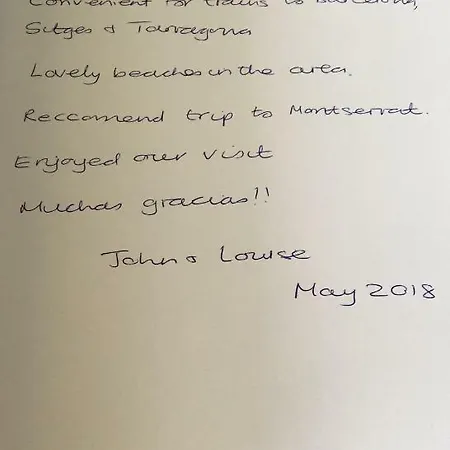 Convenient for trains to Barcelona,
Sitges & Tarragona
Lovely beaches in the area.
Reccomend trip to Montserrat.
Enjoyed our visit
Muchas gracias!!
John & Louise
May 2018